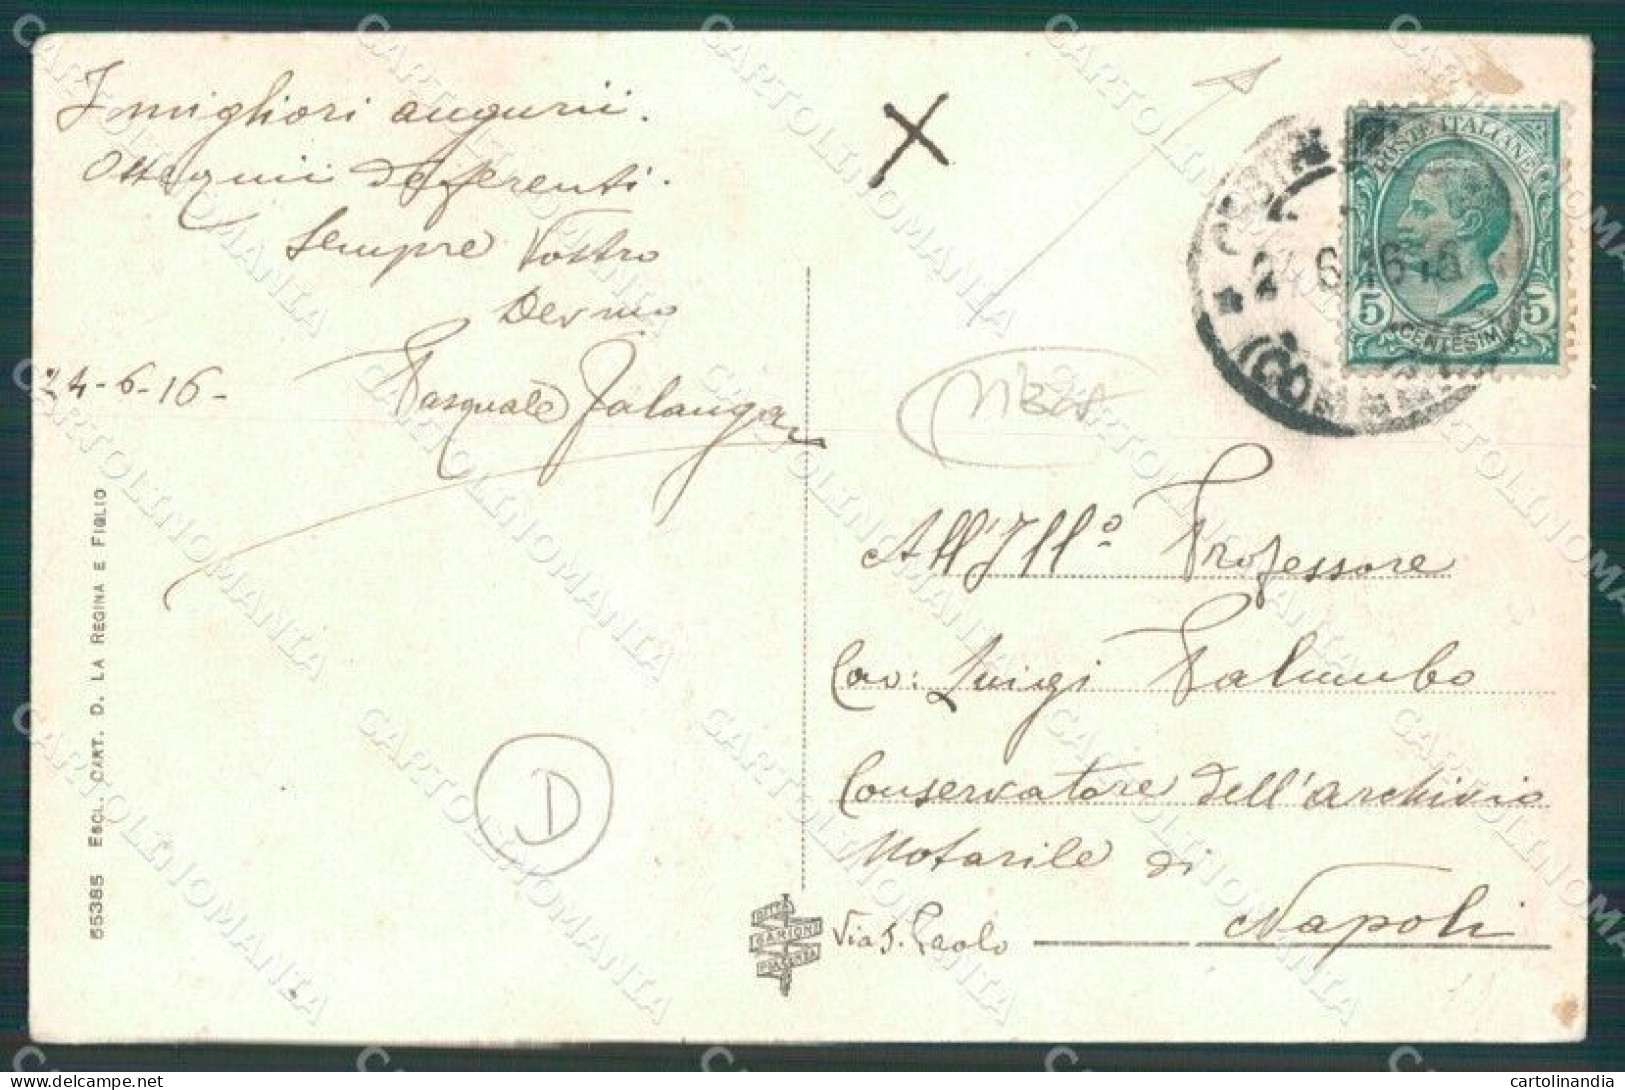 I migliori augurii.
Ossequii deferenti.
Sempre Vostro
Dev mo
24-6-16-
Pasquale Falanga
55385 ESCL. CART. D. LA REGINA E FIGLIO
D
POSTE ITALIANE
5 5
CENTESIMI
24.6.16
All'Ill.º Professore
Cav: Luigi Palumbo
Conservatore dell'archivio
Notarile di
Napoli
Via S. Paolo
DITTA
CARIONI
PIACENZA
CARTOLINOMANIA
cartolinandia